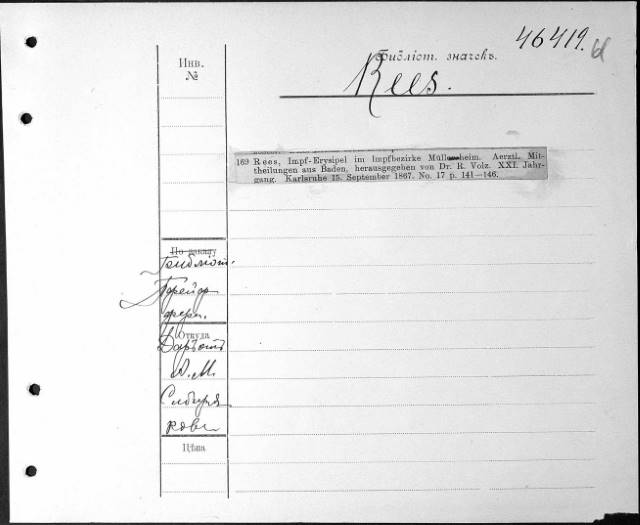 46419.
Инв.
№
Библіот. значекъ.
Rees.
169 Rees, Impf-Erysipel im Impfbezirke Müllenheim. Aerztl. Mit-
theilungen aus Baden, herausgegeben von Dr. R. Volz. XXI. Jahr-
gang. Karlsruhe 15. September 1867. No. 17 p. 141—146.
По каталу
Откуда
А. М.
Сибиря
кова
Цѣна